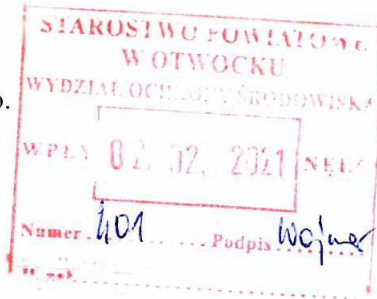 STAROSTWO POWIATOWE
W OTWOCKU
WYDZIAŁ OCHRONY ŚRODOWISKA
o.
WPŁYNĘŁO
02. 02. 2021
Numer 401 Podpis